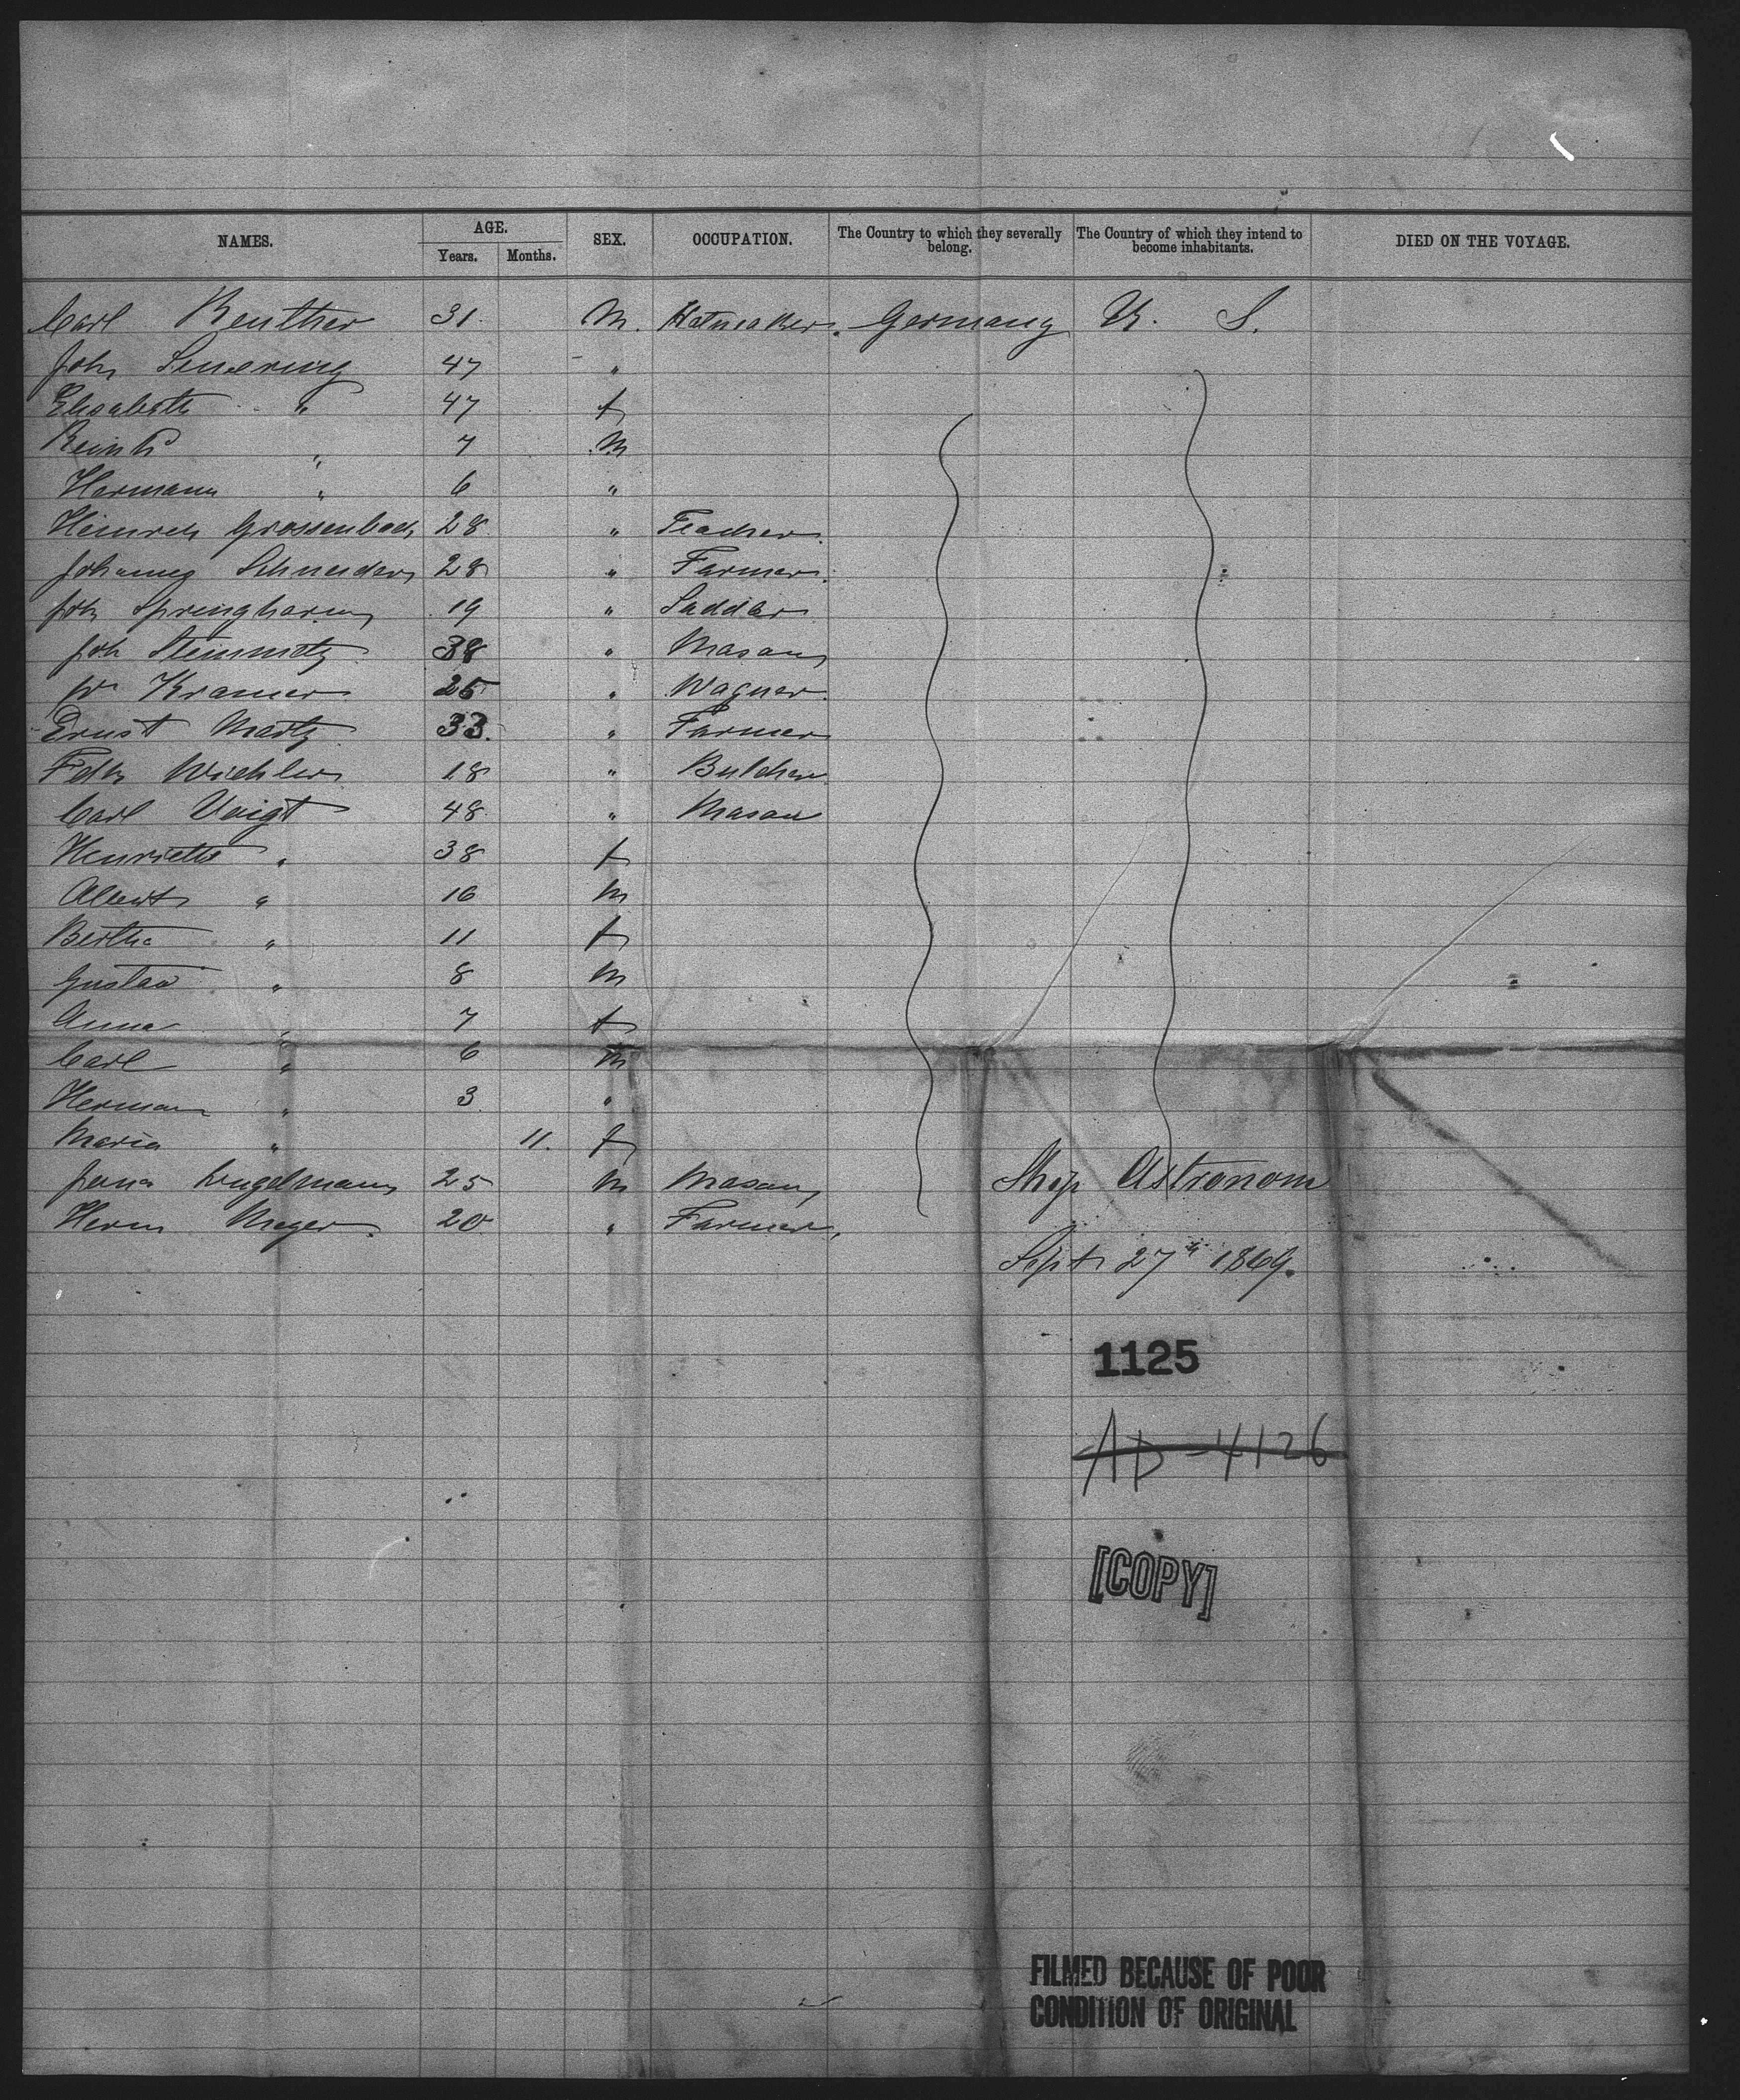 NAMES. AGE. SEX. OCCUPATION. The Country to which they severally belong. The Country of which they intend to become inhabitants. DIED ON THE VOYAGE.
Years. Months.
Carl Reuther 31 M. Hatmaker. Germany U. S.
Joh 47 "
Elisabeth " 47 f
" 7 M
Hermann " 6 "
Heinrich Grossenbach 28 " Teacher.
Johannes Schneider 28 " Farmer.
Joh 19 " Saddler
Joh Steinmetz 38 " Mason
Kramer 25 " Wagner.
Ernst Martz 33. " Farmer
Wichler 18 " Butcher
Carl Voigt 48 " Mason
Henriette " 38 f
Albert " 16 M
Bertha " 11 f
Gustav " 8 M
Anna " 7 f
Carl " 6 M
Herman " 3 "
Maria " 11. f
25 M Mason
Herm Meyer 20 " Farmer.
Ship Astronom
Sept 27th 1869.
1125
AD-4126
[COPY]
FILMED BECAUSE OF POOR
CONDITION OF ORIGINAL